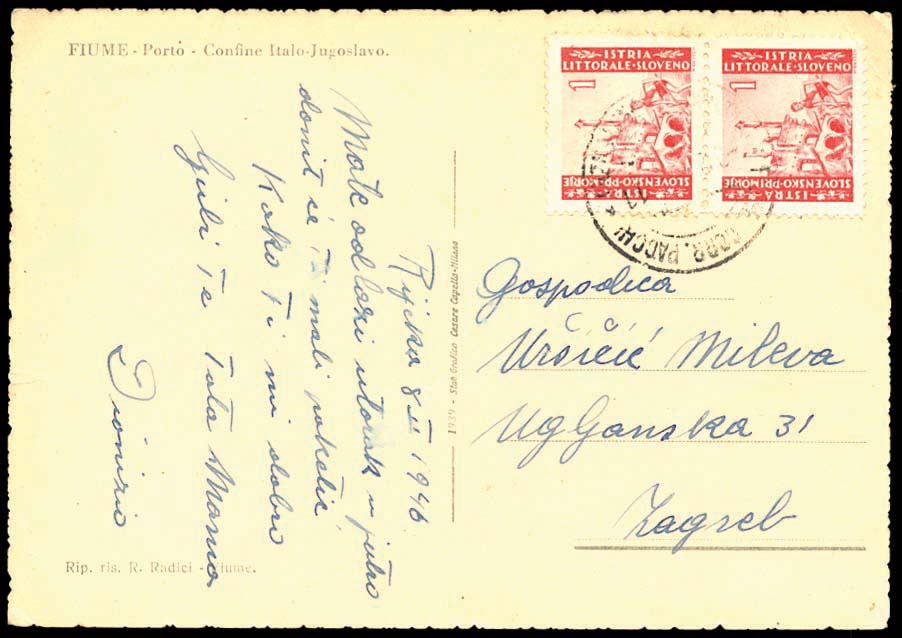 FIUME - Porto - Confine Italo-Jugoslavo.
Rijeka 8 II 1946
Mate odlazi utorak u jutro
donit će Ti mali paketić
Kako Ti mi dobro
Grli Te Tata Mama
Dionizio
1939 - Stab Grafico Cesare Capello-Milano
Rip. ris. R. Radici - Fiume.
ISTRIA
LITTORALE·SLOVENO
1
SLOVENSKO-PRIMORJE
ISTRA
ISTRIA
LITTORALE·SLOVENO
1
SLOVENSKO-PRIMORJE
ISTRA
CORR. PACCHI
17
Gospodica
Uršičić Mileva
Ugljanska 31
Zagreb